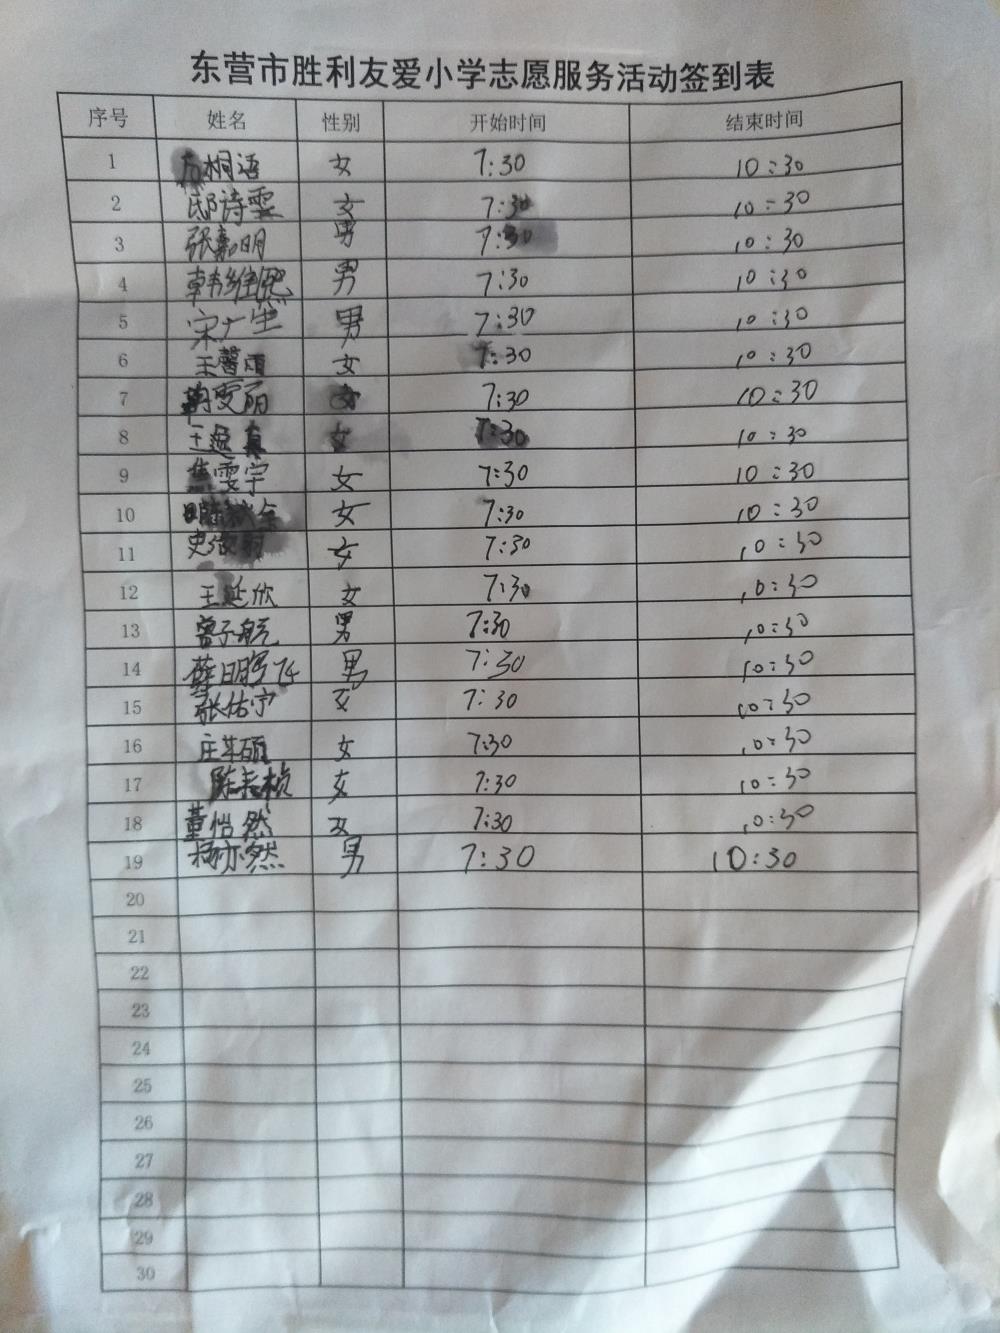 东营市胜利友爱小学志愿服务活动签到表
序号 姓名 性别 开始时间 结束时间
1 桐语 女 7:30 10:30
2 邸诗雯 女 7:30 10:30
3 张嘉明 男 7:30 10:30
4 韩维熙 男 7:30 10:30
5 宋广 男 7:30 10:30
6 王馨雨 女 7:30 10:30
7 雯丽 女 7:30 10:30
8 王 真 女 7:30 10:30
9 雯宇 女 7:30 10:30
10 女 7:30 10:30
11 史 女 7:30 10:30
12 王延欣 女 7:30 10:30
13 曾子航 男 7:30 10:30
14 薛明 男 7:30 10:30
15 张佑宁 女 7:30 10:30
16 庄 硕 女 7:30 10:30
17 陈 桢 女 7:30 10:30
18 董恺然 女 7:30 10:30
19 杨亦然 男 7:30 10:30
20
21
22
23
24
25
26
27
28
29
30